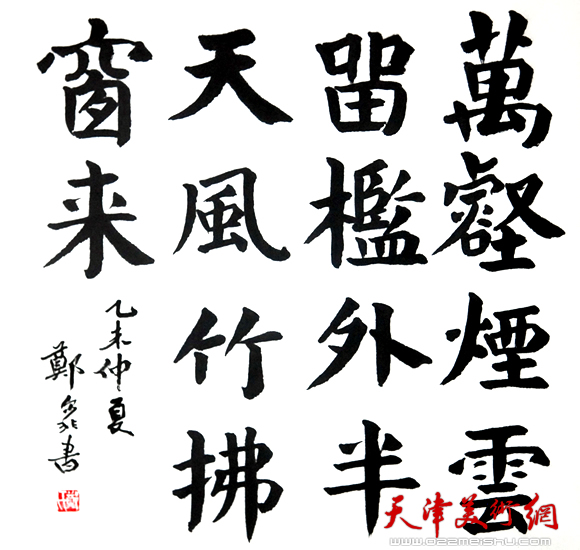 萬壑煙雲
留檻外半
天風竹拂
窗来
乙未仲夏
鄭書
天津美術網
www.022meishu.com